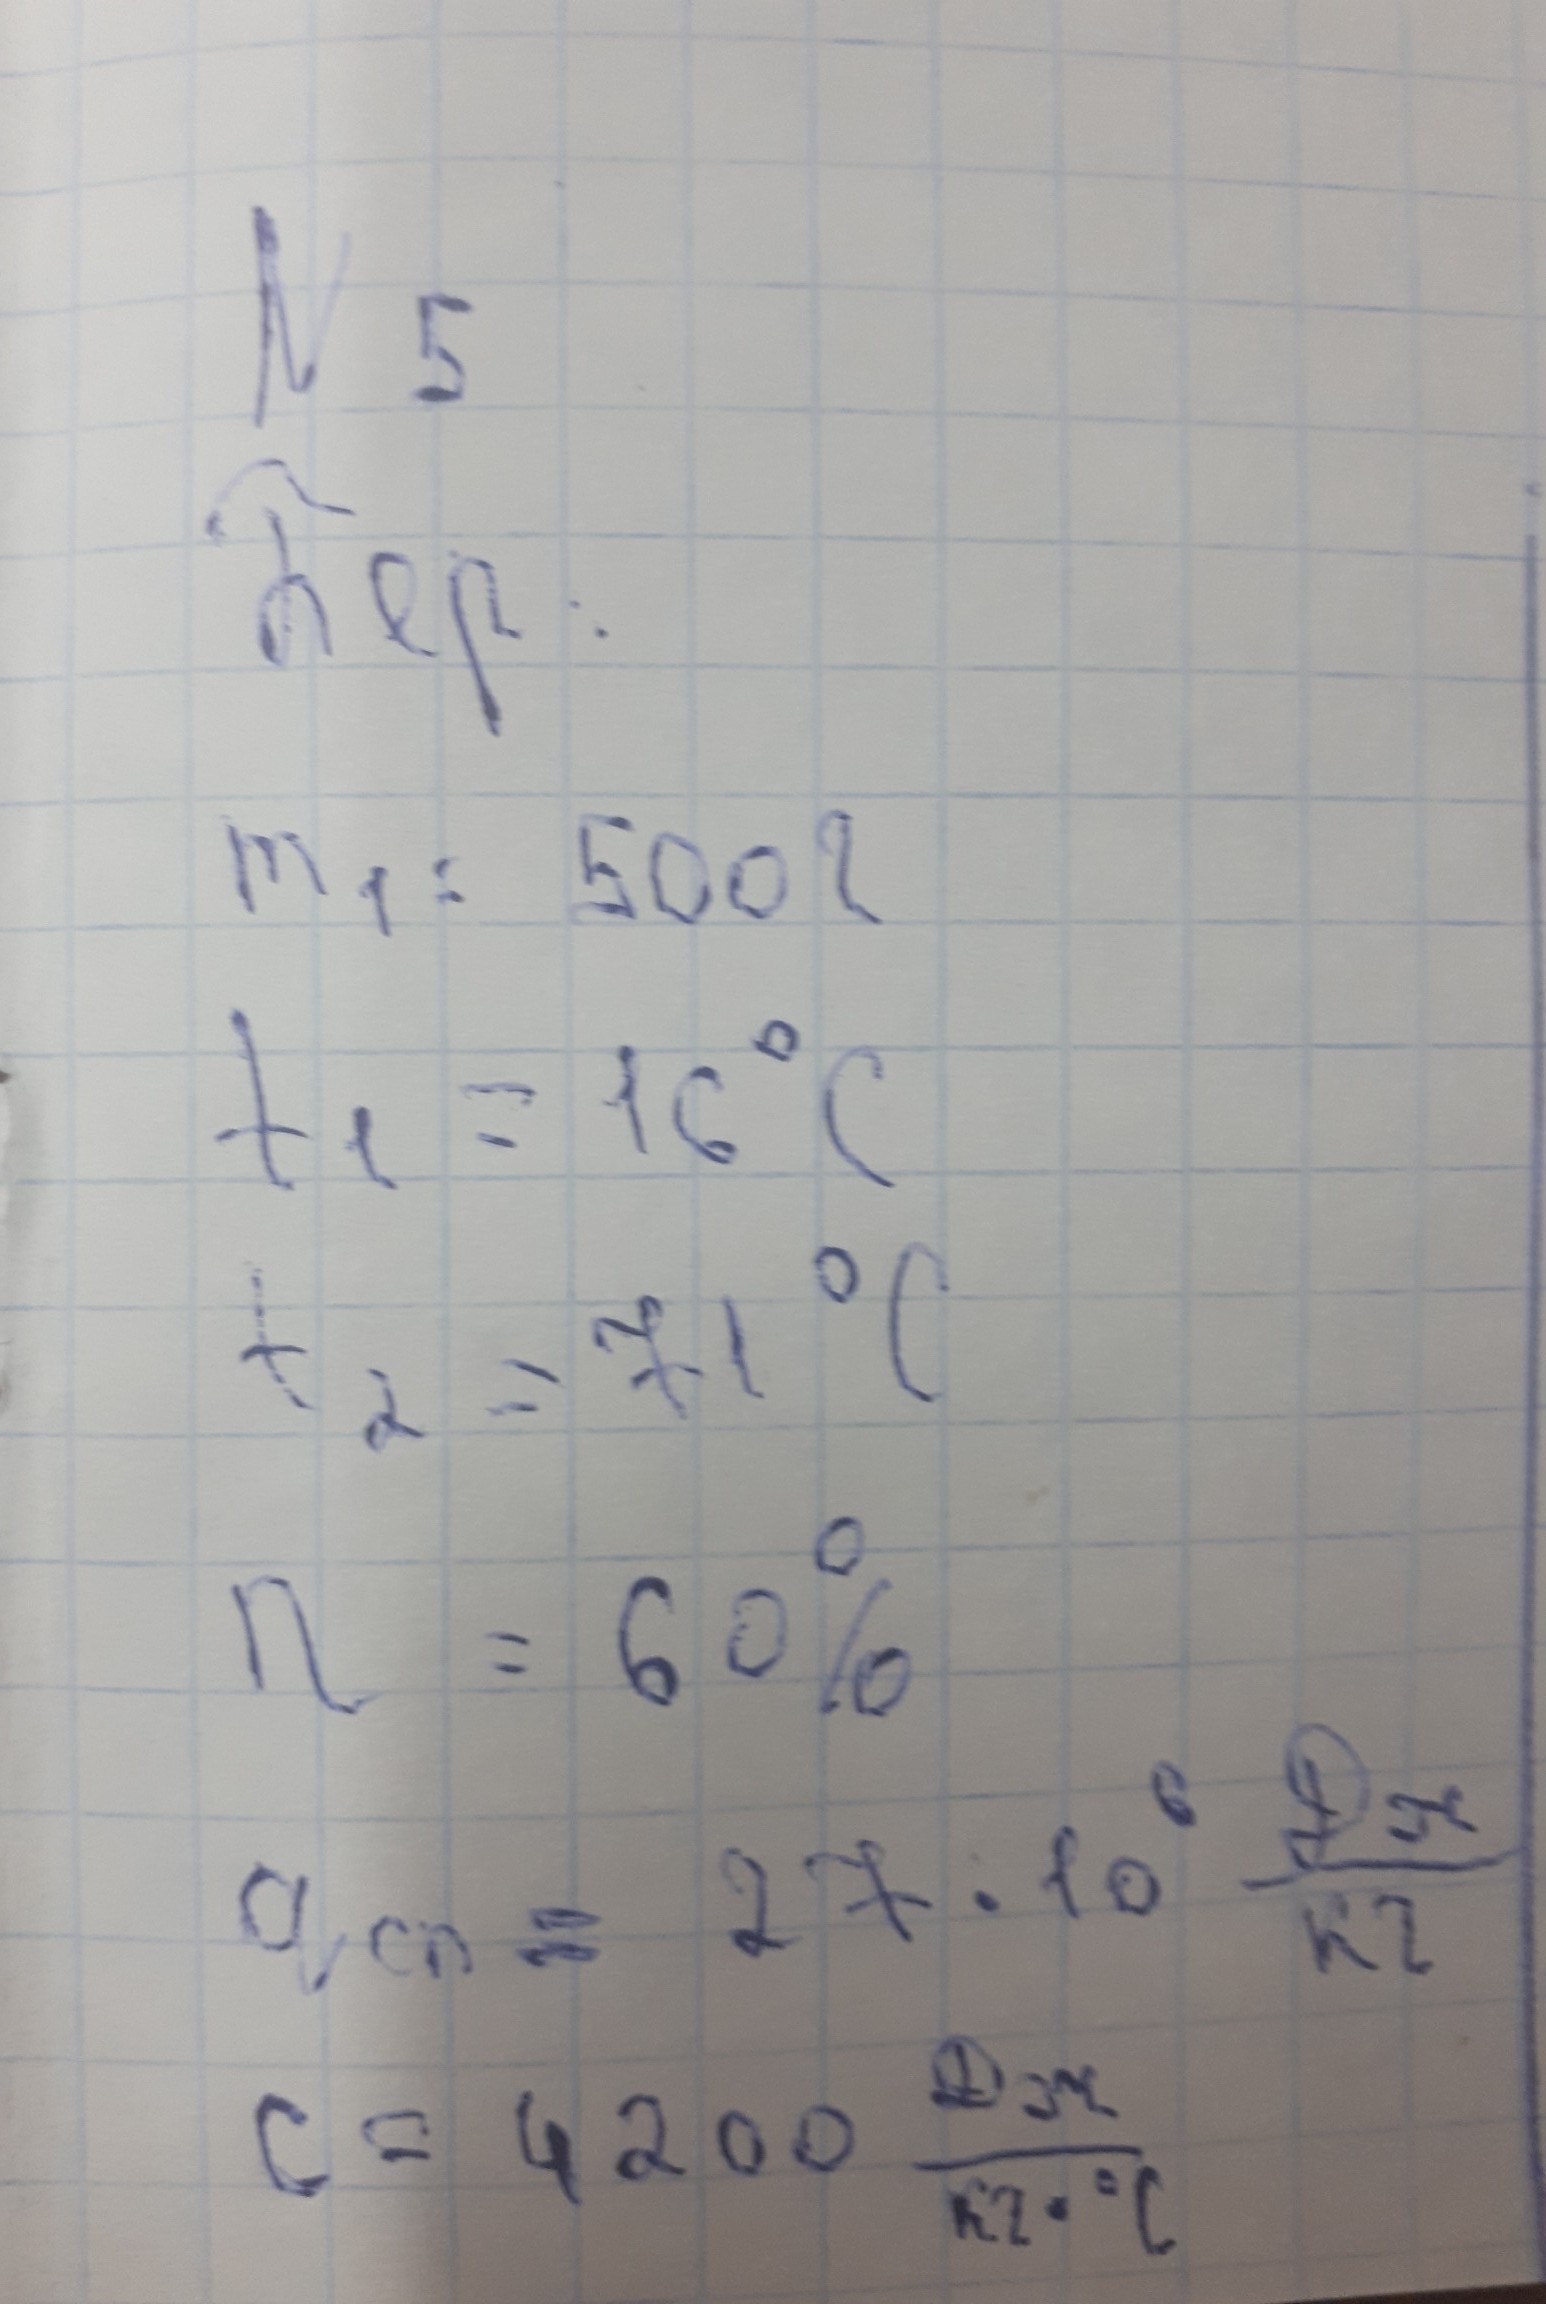 N 5
Бер:
m₁ = 500г
t₁ = 16°C
t₂ = 71°C
η = 60%
qсп = 27·10⁶ Дж/кг
c = 4200 Дж/кг·°C